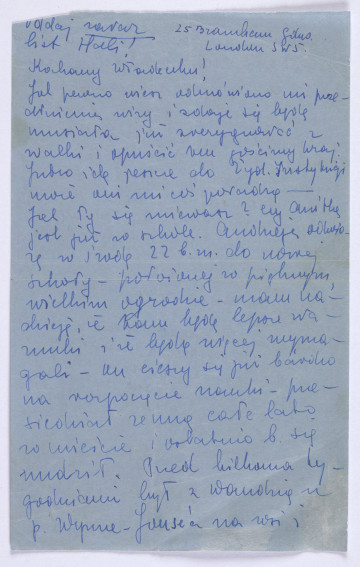 oddaj zaraz
list Hali!
25 Bramham Gdns.
London SW5.
Kochany Władechu!
Jak pewno wiesz odmówiono mi prze-
dłużenia wizy i zdaje się będę
musiała już zrezygnować z
walki i opuścić ten gościnny kraj
Jutro idę jeszcze do Żyd. Instytucji
może oni mi coś poradzą —
Jak Ty się miewasz? czy Anitka
jest już w szkole. Andrzeja odwo-
żę w środę 22 b.m. do nowej
szkoły – położonej w pięknym,
wielkim ogrodzie – mam na-
dzieję, że tam będą lepsze wa-
runki i że będą więcej wyma-
gali – on cieszy się już bardzo
na rozpoczęcie nauki – prze-
siedział ze mną całe lato
w mieście i ostatnio b. się
nudził. Przed kilkoma ty-
godniami był z Wandzią u
p. Wynne-Jones'a na wsi i